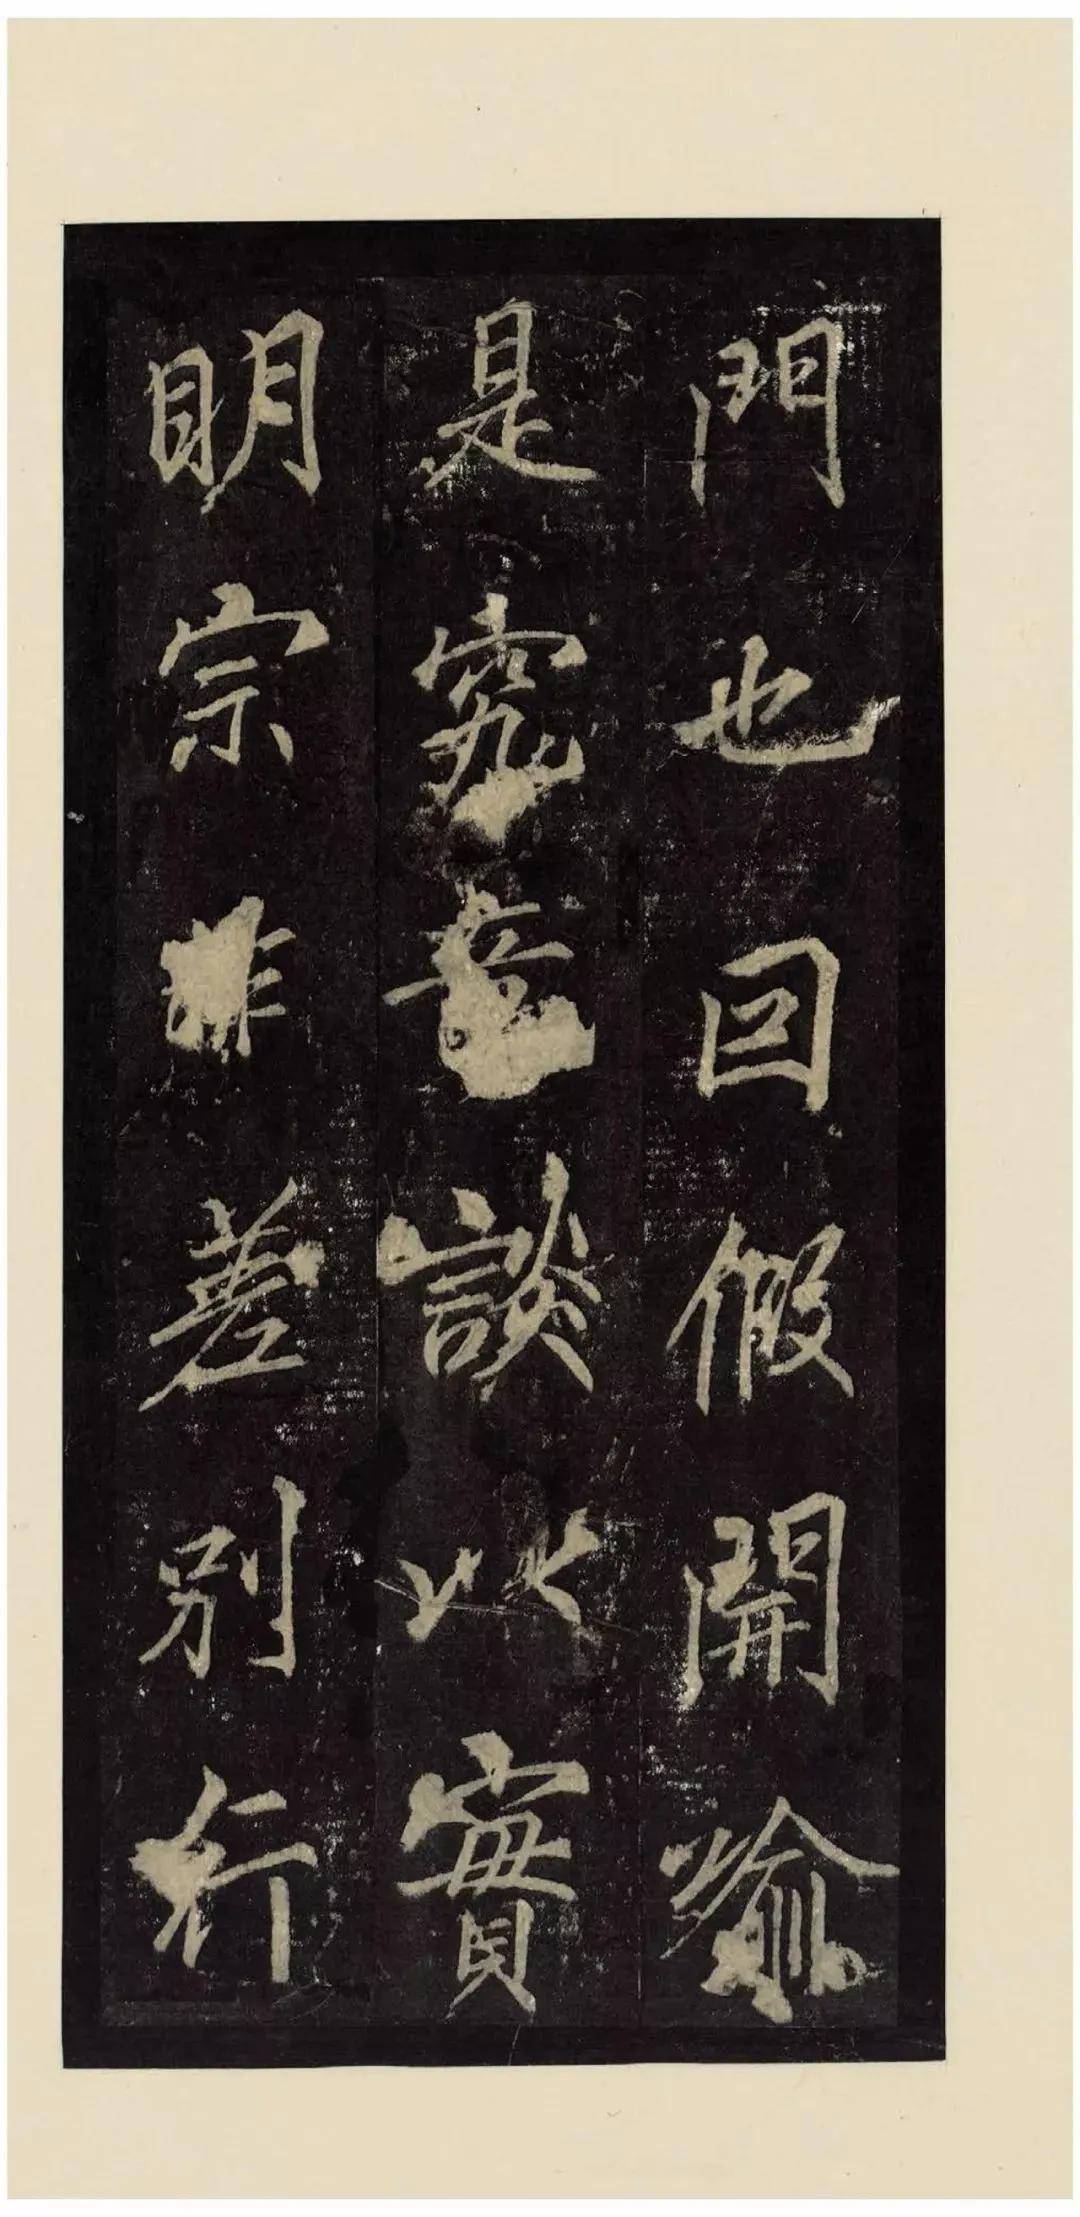 門也囙假開喻
是究竟談以實
明宗非差別行